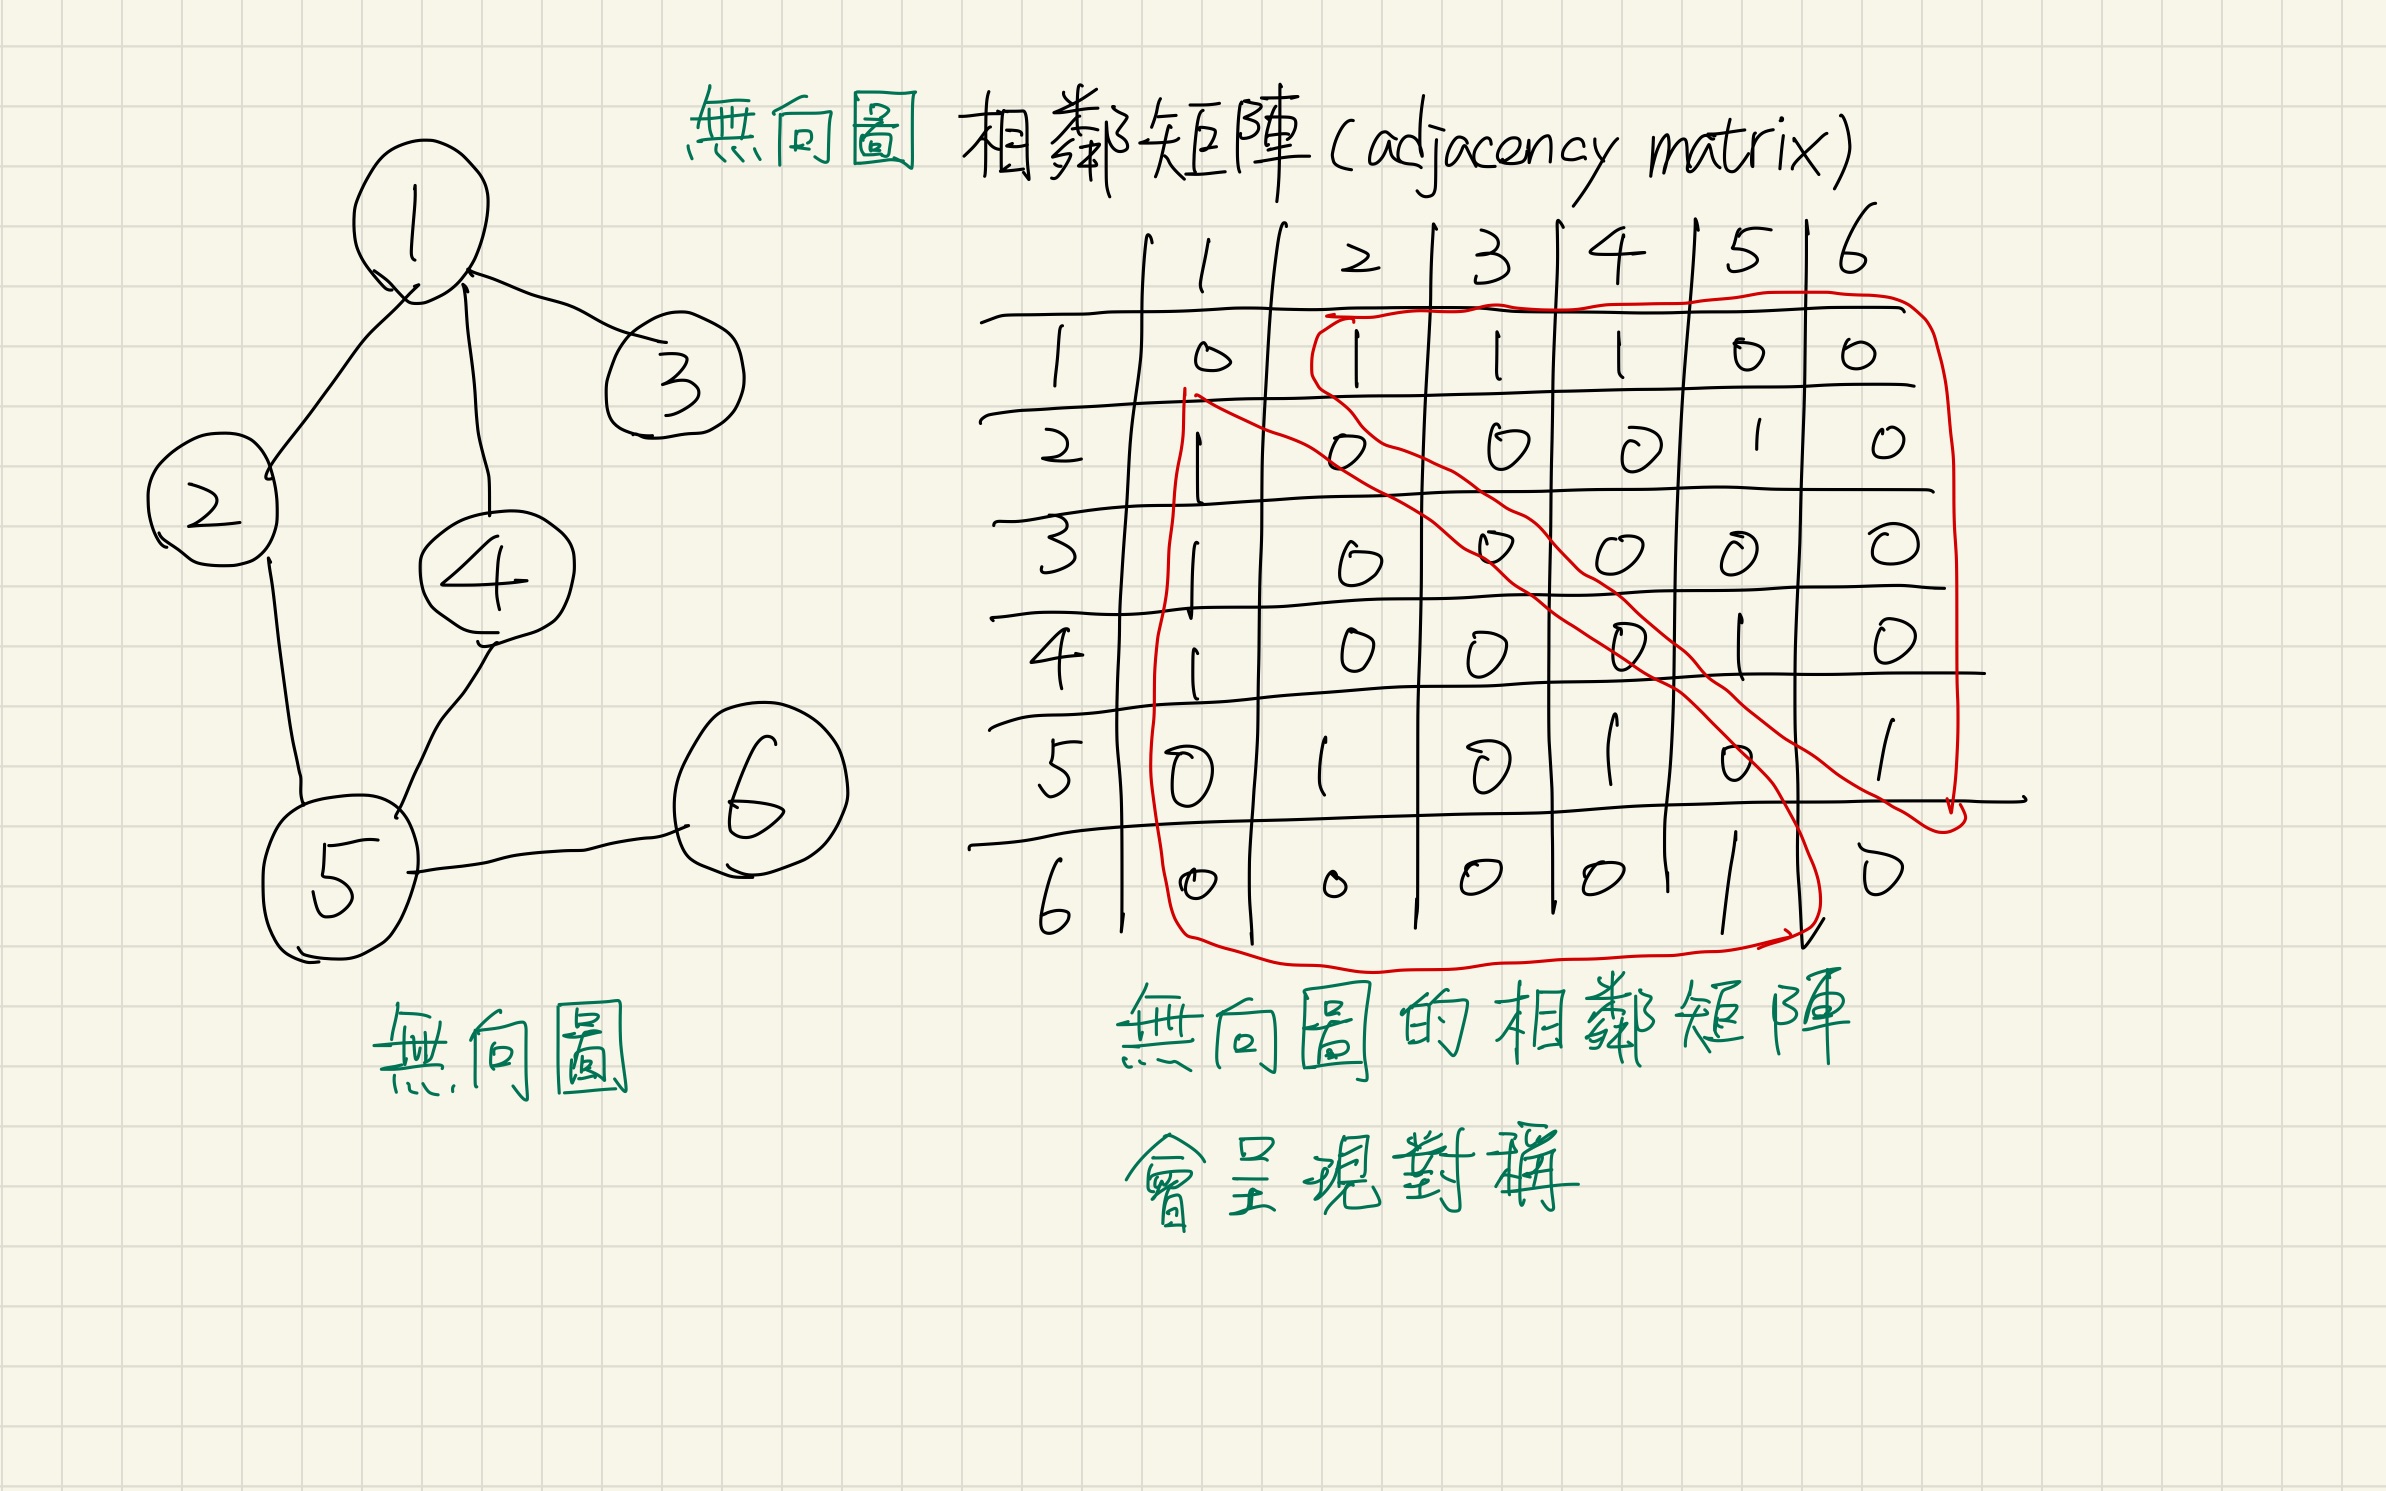 無向圖 相鄰矩陣 (adjacency matrix)
1
3
2
4
5
6
無向圖
1 2 3 4 5 6
1 0 1 1 1 0 0
2 1 0 0 0 1 0
3 1 0 0 0 0 0
4 1 0 0 0 1 0
5 0 1 0 1 0 1
6 0 0 0 0 1 0
無向圖的相鄰矩陣
會呈現對稱